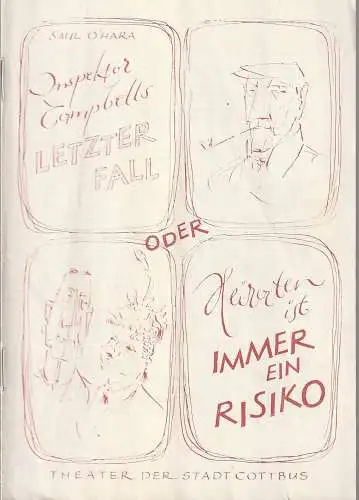 SAUL O'HARA
Inspektor
Campbells
LETZTER
FALL
ODER
Heiraten
ist
IMMER
EIN
RISIKO
THEATER DER STADT COTTBUS